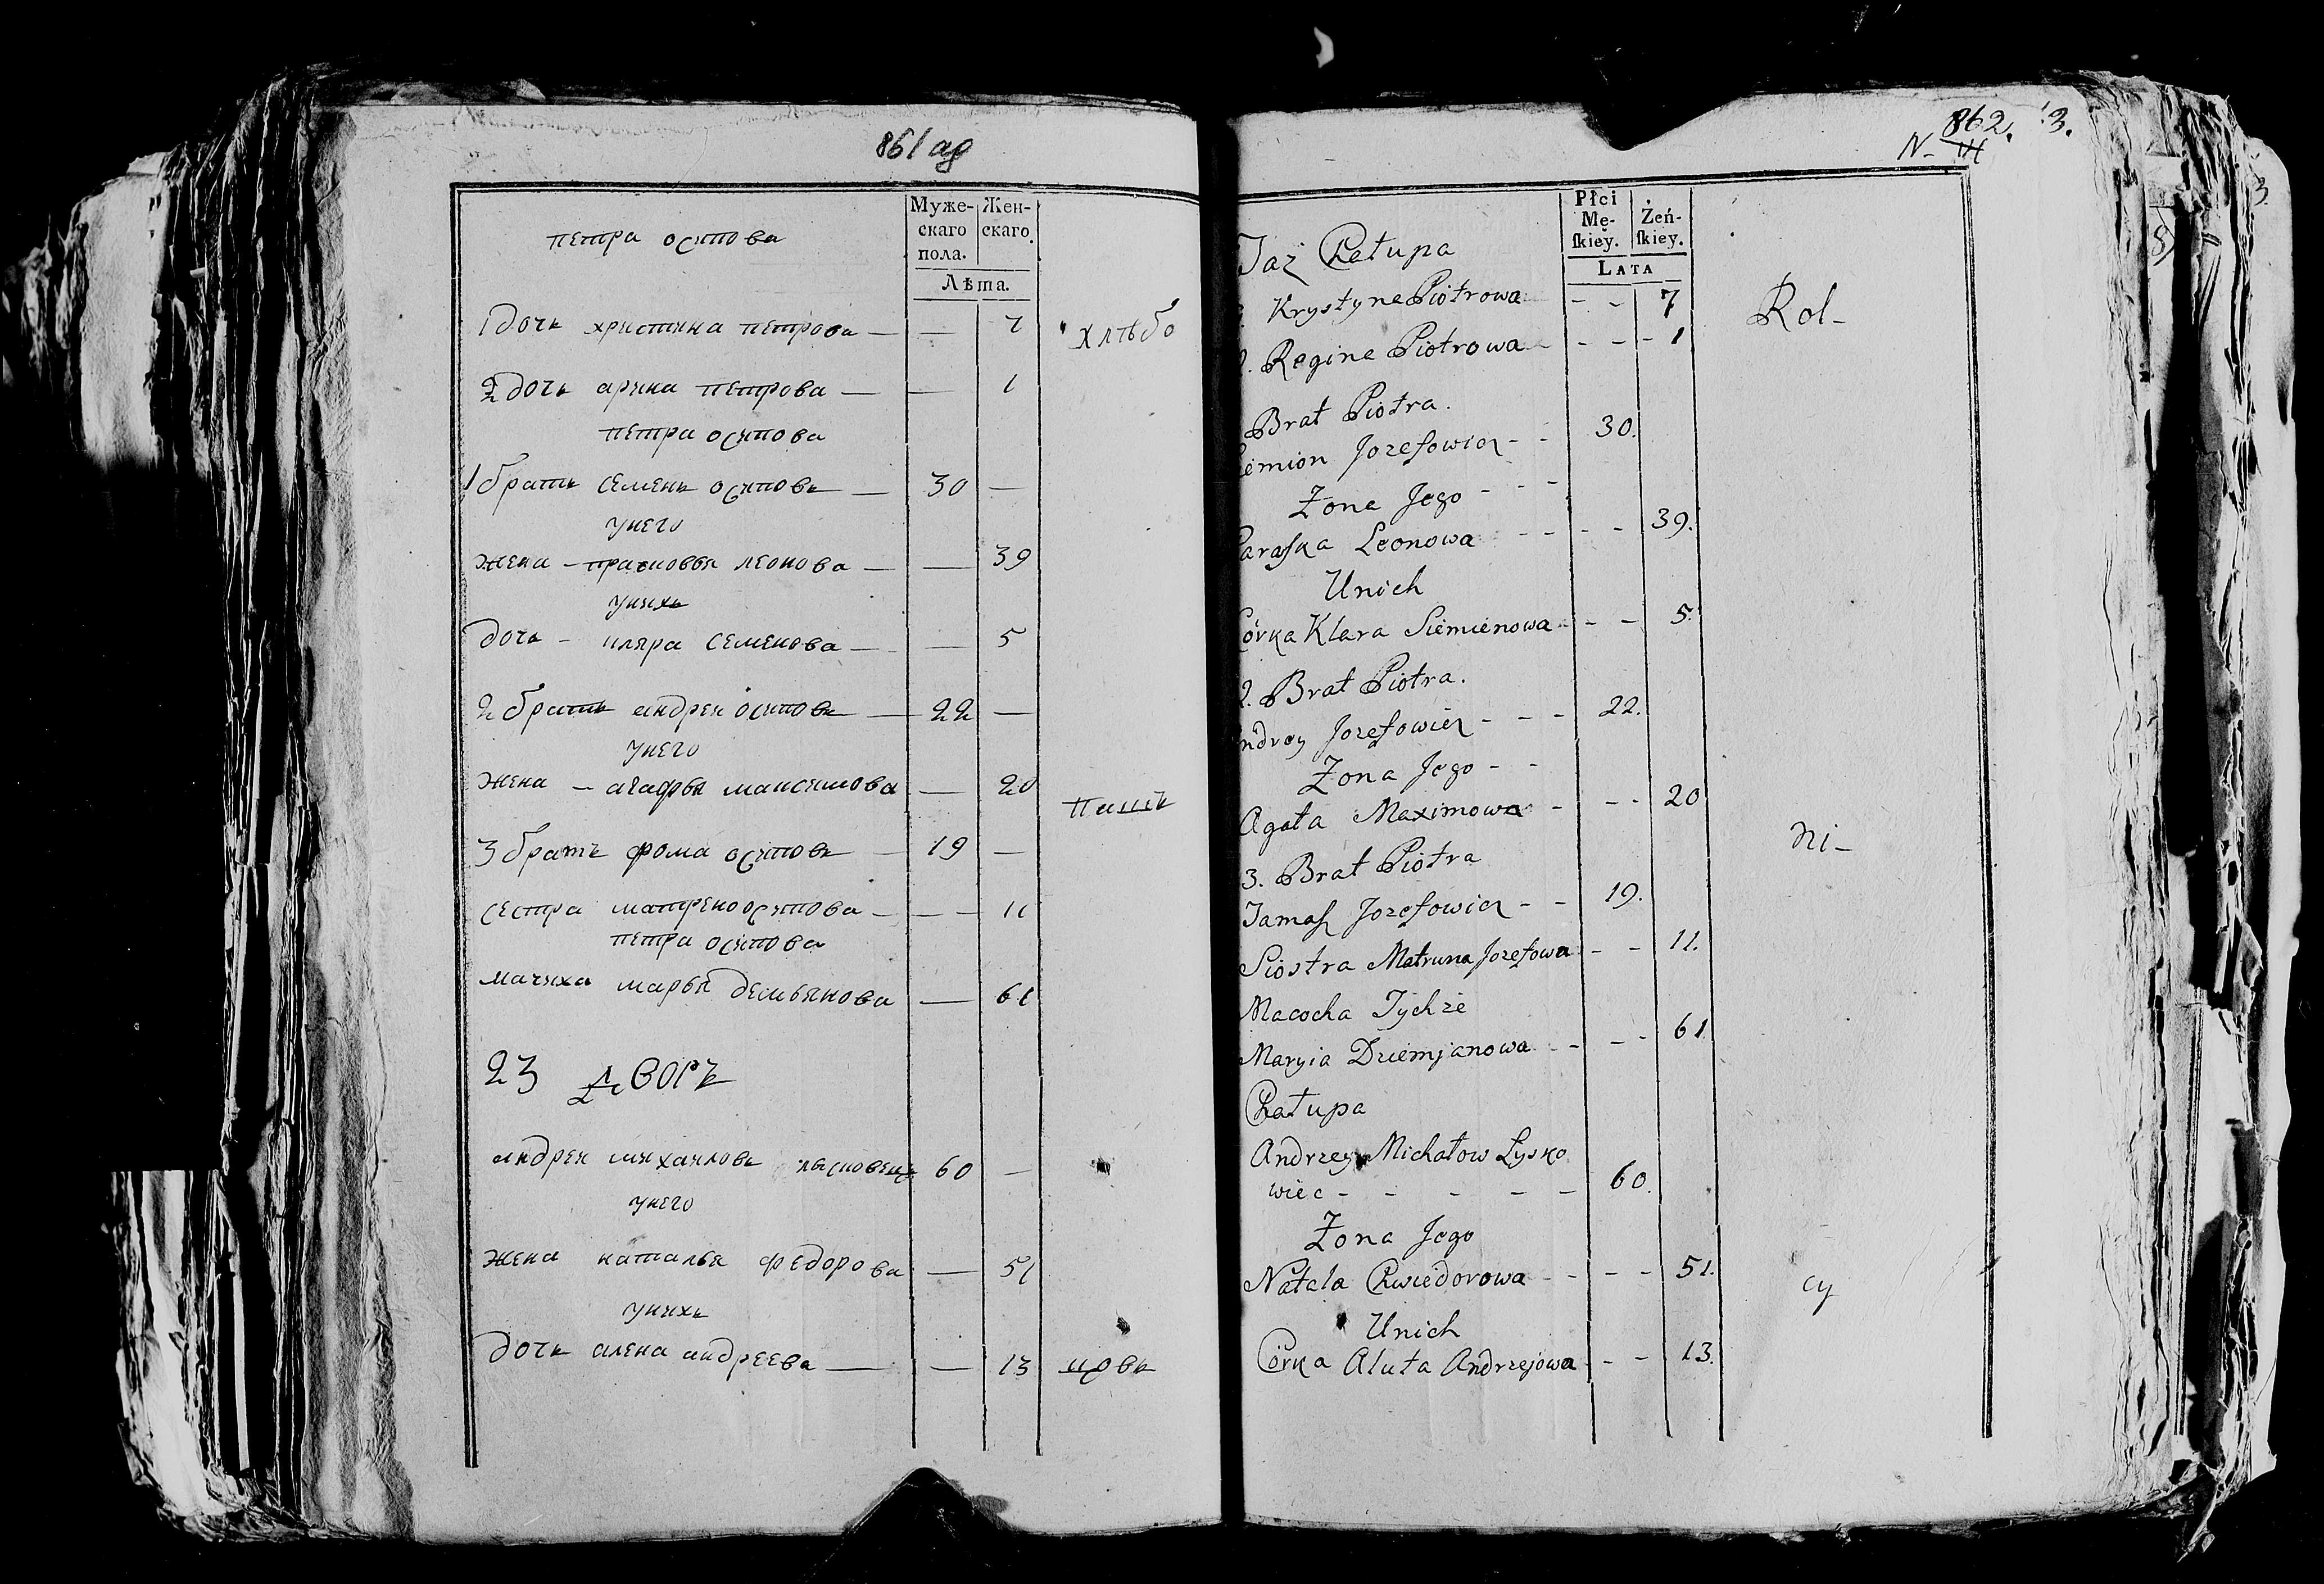 861 об
Муже-
скаго
пола.
Жен-
скаго.
Лѣта.
петра осипова
1 дочь христина петрова — — 7
хлѣбо
2 дочь арина петрова — — 1
петра осипова
1 братъ семенъ осиповъ — 30 —
унего
жена — прасковья леонова — — 39
унихъ
дочь — кляра семенова — — 5
2 братъ андреи осиповъ — 22 —
унего
жена — агафья максимова — 20
паш
3 братъ фома осиповъ — 19 —
сестра матрена осипова — — 11
петра осипова
мачиха марья демьянова — 61
23 дворъ
андреи михаиловъ лысковецъ 60 —
унего
жена наталья федорова — 51
унихъ
дочь алена андреева — — 13
цовъ
862. 3.
N-
Płci
Mę-
skiey.
Żeń-
skiey.
LATA
Taż Chałupa
Krystyna Piotrowa - - 7
Rol-
2. Regina Piotrowa - - - 1
Brat Piotra.
Siemion Jozefowicz - - 30.
Żona Jego - - -
Paraska Leonowa - - - - 39.
Unich
Córka Klara Siemienowa - - - 5.
2. Brat Piotra.
Andrey Jozefowicz - - - 22.
Żona Jego - -
Agata Maximowa - - - 20
ni-
3. Brat Piotra
Tamasz Jozefowicz - - 19.
Siostra Matruna Jozefowa - - 11.
Macocha Tychże
Maryia Dziemjanowa - - - - 61
Chałupa
Andrzey Michałow Lysko
wiec - - - - - 60.
Żona Jego
Natala Chwiedorowa - - - - 51.
cy
Unich
Córka Aluta Andrzejowa - - - 13.